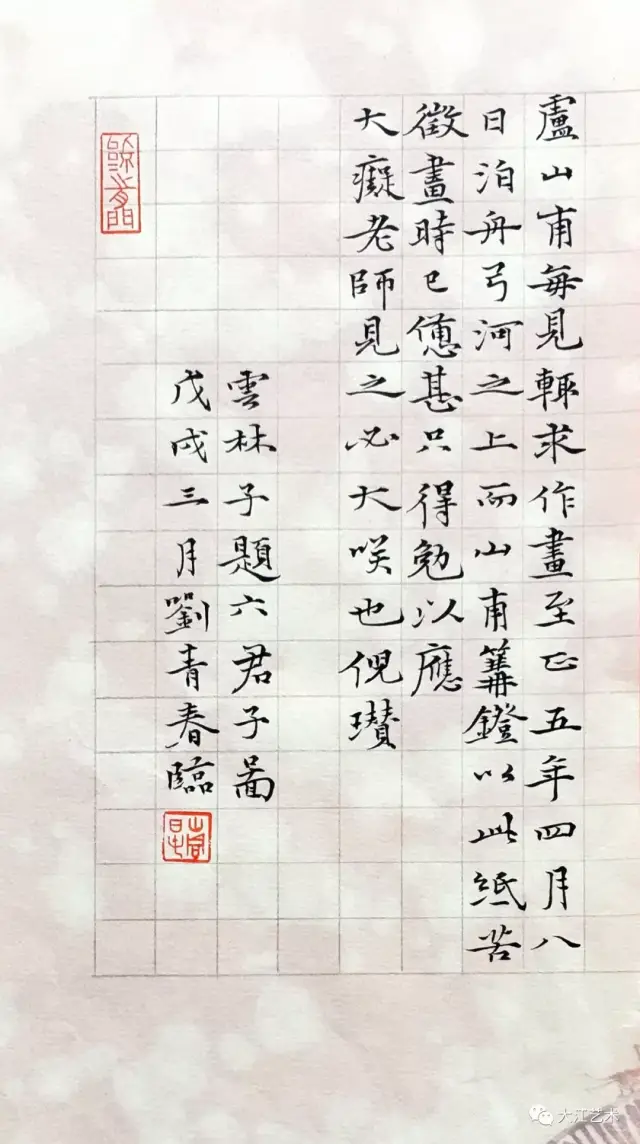 盧山甫每見輒求作畫至正五年四月八
日泊舟弓河之上而山甫篝鐙以此紙苦
徵畫時已憊甚只得勉以應
大癡老師見之必大咲也倪瓚
雲林子題六君子圖
戊戌三月劉青春臨
大江艺术